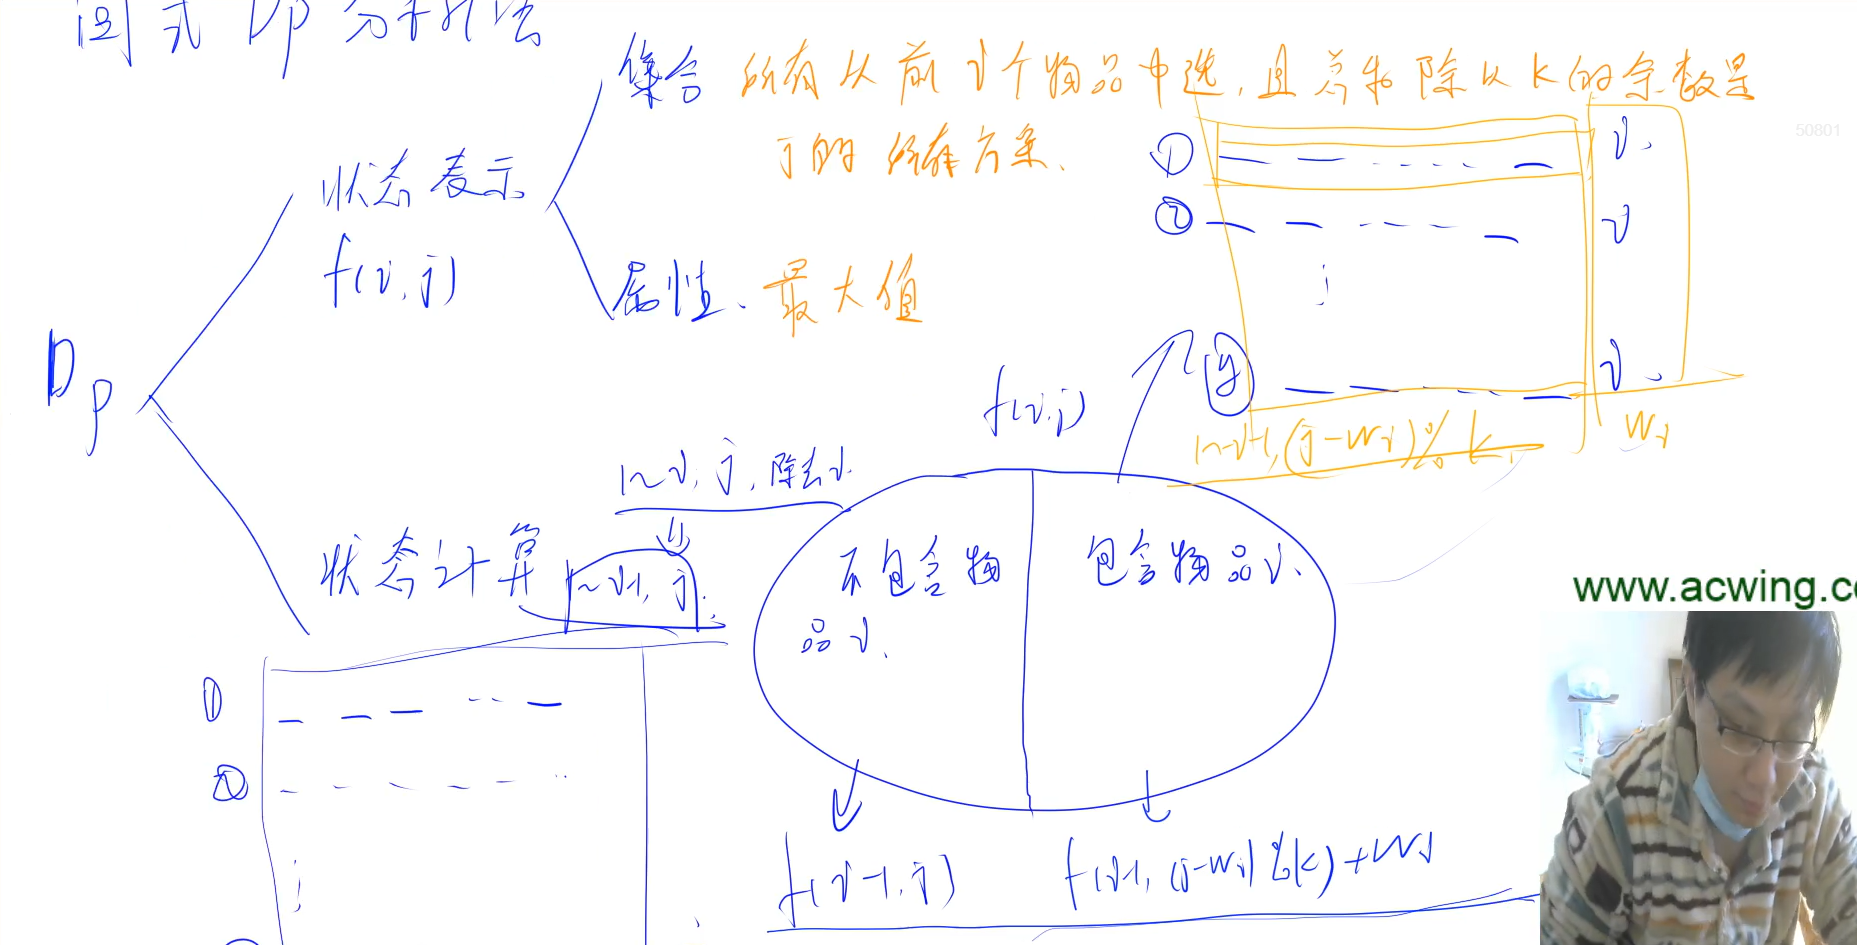 闫式DP分析法
集合 所有从前i个物品中选,且总和除以K的余数是
j的所有方案、
50801
① i、
② i
状态表示
f(i,j)
属性、最大值
i、
DP
f(i,j)
1~i-1,(j-wi)%k
wi
1~i, j, 除去i
状态计算
1~i-1, j
不包含物
品i、
包含物品i、
www.acwing.c
①
②
f(i-1,j)
f(i-1,(j-wi)%k)+wi